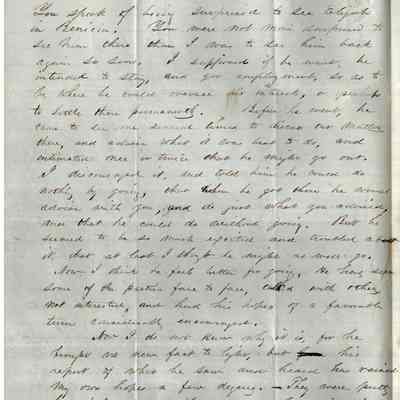 You speak of being surprised to see Elijah
in Benicia. You were not more surprised to
see him there than I was to see him back
again so soon. I supposed if he went, he
intended to stay, and get employment, so as to
be where he could manage his interests, or perhaps
to settle there permanently. Before he went, he
came to see me several times to discuss our matters
there, and advise what it was best to do, and
intimated once or twice that he might go out.
I discouraged it, and told him he would do
nothing by going, that when he got there he would
advise with you, and do just what you advised,
and that he could do without going. But he
seemed to be so much agitated and troubled about
it, that at last I thot he might as well go.
Now I think he feels better for going. He has seen
some of the parties face to face, talked with others
not interested, and had his hopes of a favorable
turn considerably encouraged.
Now I do not know why it is, for he
brought no new fact to light, but his
report of what he saw and heard has raised
my own hopes a few degrees. — They were pretty